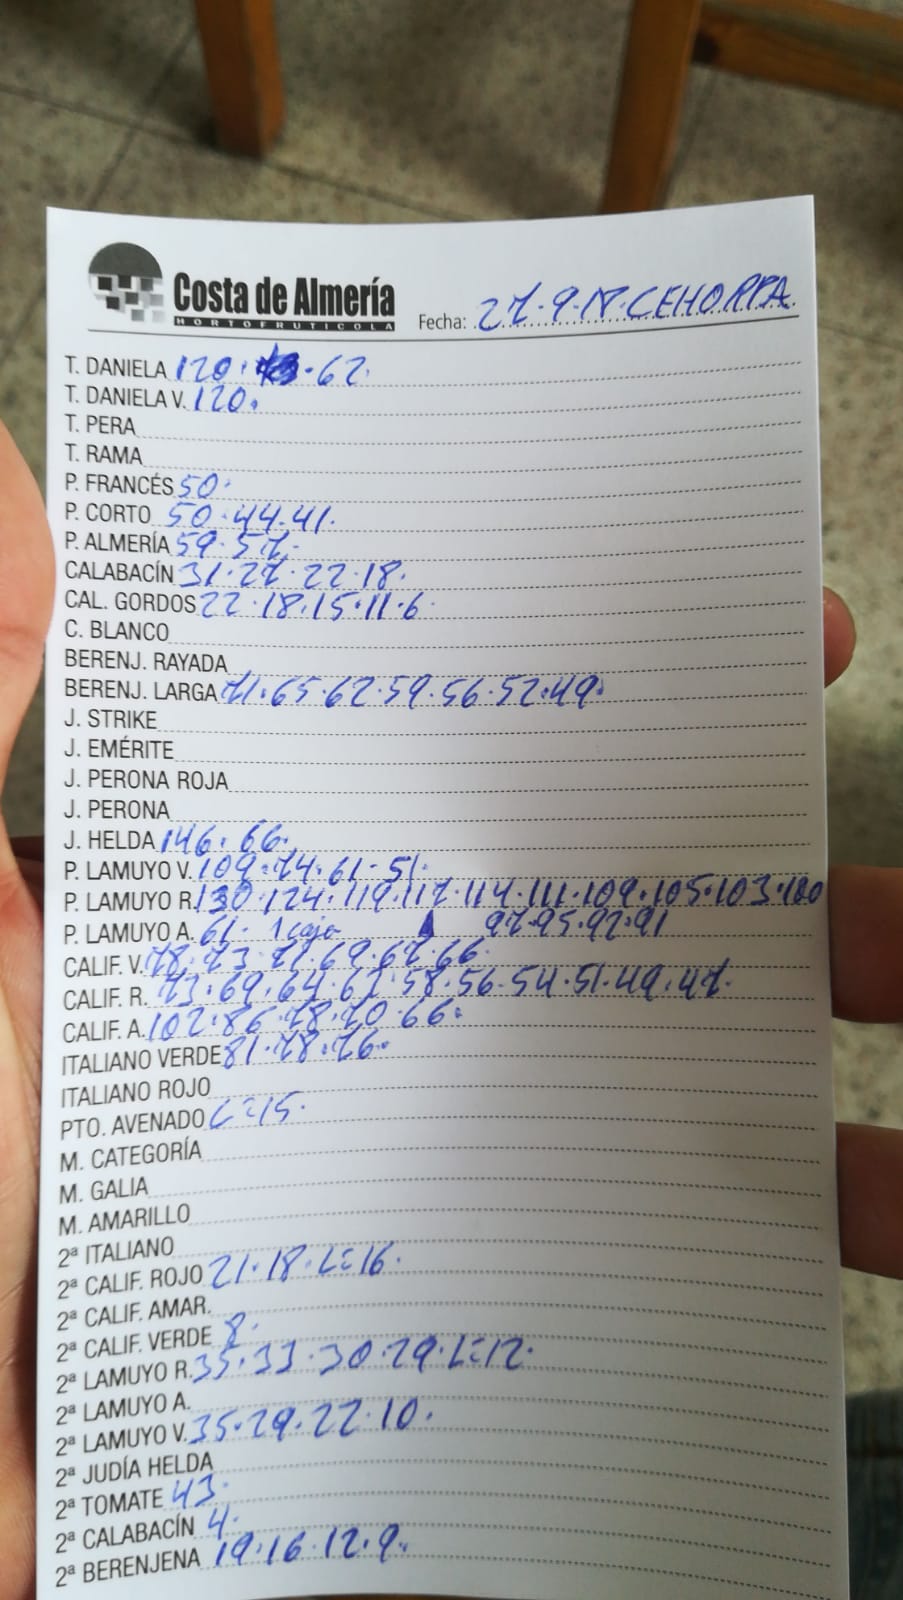 Costa de Almería
HORTOFRUTICOLA
Fecha: 27·9·18·CEHORPA
T. DANIELA 120· ·62·
T. DANIELA V. 120·
T. PERA
T. RAMA
P. FRANCÉS 50·
P. CORTO 50·44·41·
P. ALMERÍA 59·57·
CALABACÍN 31·27·22·18·
CAL. GORDOS 22·18·15·11·6·
C. BLANCO
BERENJ. RAYADA
BERENJ. LARGA 71·65·62·59·56·52·49·
J. STRIKE
J. EMÉRITE
J. PERONA ROJA
J. PERONA
J. HELDA 146·66·
P. LAMUYO V. 109·74·61·51·
P. LAMUYO R. 130·124·119·117·114·111·109·105·103·100
97·95·92·91
P. LAMUYO A. 61· 1 caja
CALIF. V. 78·73·71·69·67·66·
CALIF. R. 73·69·64·61·58·56·54·51·49·47·
CALIF. A. 102·86·78·70·66·
ITALIANO VERDE 81·78·76·
ITALIANO ROJO
PTO. AVENADO L=15·
M. CATEGORÍA
M. GALIA
M. AMARILLO
2ª ITALIANO
2ª CALIF. ROJO 21·18·L=16·
2ª CALIF. AMAR.
2ª CALIF. VERDE 8·
2ª LAMUYO R. 35·33·30·29·L=12·
2ª LAMUYO A.
2ª LAMUYO V. 35·29·22·10·
2ª JUDÍA HELDA
2ª TOMATE 43·
2ª CALABACÍN 4·
2ª BERENJENA 19·16·12·9·